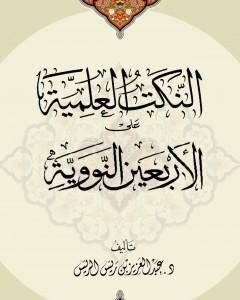 النكت العلمية
على
الأربعين النووية
تأليف
د. عبدالعزيز بن ريس الريس